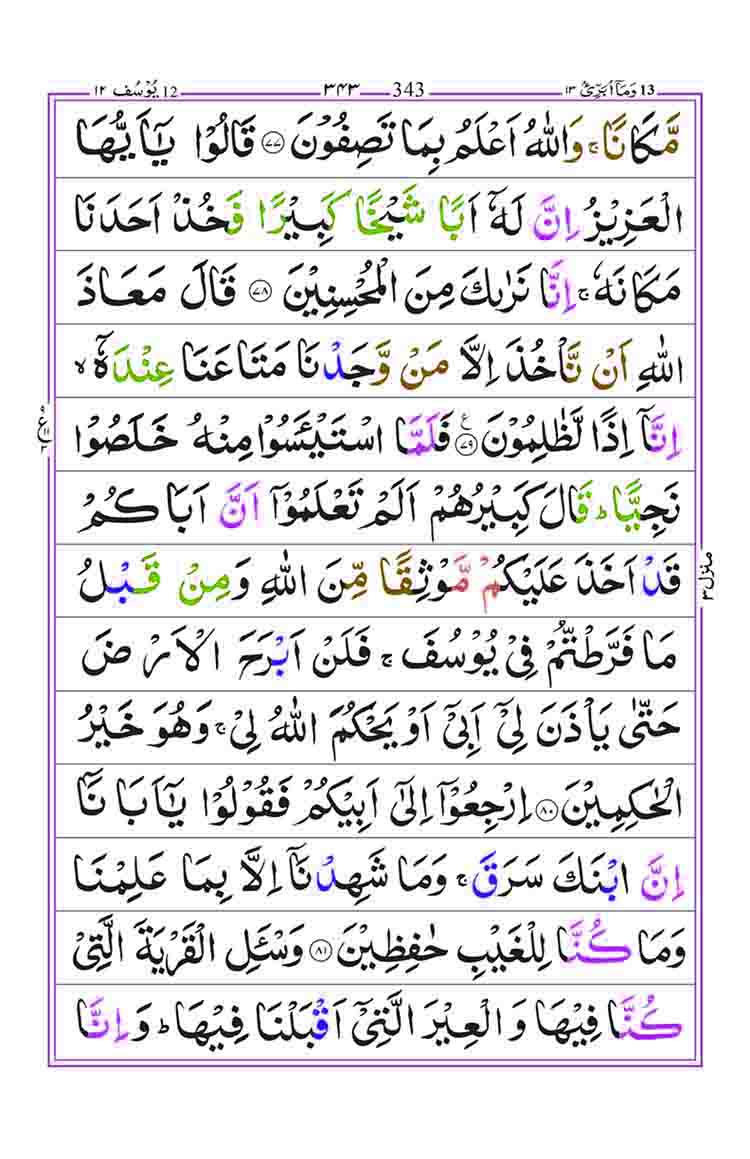 13 وَمَاۤ اُبَرِّئُ ١٣ 343 ٣٤٣ 12 يُوْسُف ١٢
مَّكَانًا ۚ وَاللّٰهُ اَعْلَمُ بِمَا تَصِفُوْنَ ۝٧٧ قَالُوْا يٰۤاَيُّهَا
الْعَزِيْزُ اِنَّ لَهٗۤ اَبًا شَيْخًا كَبِيْرًا فَخُذْ اَحَدَنَا
مَكَانَهٗ ۚ اِنَّا نَرٰىكَ مِنَ الْمُحْسِنِيْنَ ۝٧٨ قَالَ مَعَاذَ
اللّٰهِ اَنْ نَّاْخُذَ اِلَّا مَنْ وَّجَدْنَا مَتَاعَنَا عِنْدَهٗۤ ۙ
اِنَّاۤ اِذًا لَّظٰلِمُوْنَ ۝٧٩ ع فَلَمَّا اسْتَيْـَٔسُوْا مِنْهُ خَلَصُوْا
نَجِيًّا ؕ قَالَ كَبِيْرُهُمْ اَلَمْ تَعْلَمُوْۤا اَنَّ اَبَاكُمْ
قَدْ اَخَذَ عَلَيْكُمْ مَّوْثِقًا مِّنَ اللّٰهِ وَمِنْ قَبْلُ
مَا فَرَّطْتُّمْ فِيْ يُوْسُفَ ۚ فَلَنْ اَبْرَحَ الْاَرْضَ
حَتّٰى يَاْذَنَ لِيْۤ اَبِيْۤ اَوْ يَحْكُمَ اللّٰهُ لِيْ ۚ وَهُوَ خَيْرُ
الْحٰكِمِيْنَ ۝٨٠ اِرْجِعُوْۤا اِلٰۤى اَبِيْكُمْ فَقُوْلُوْا يٰۤاَبَانَاۤ
اِنَّ ابْنَكَ سَرَقَ ۚ وَمَا شَهِدْنَاۤ اِلَّا بِمَا عَلِمْنَا
وَمَا كُنَّا لِلْغَيْبِ حٰفِظِيْنَ ۝٨١ وَسْـَٔلِ الْقَرْيَةَ الَّتِيْ
كُنَّا فِيْهَا وَالْعِيْرَ الَّتِيْۤ اَقْبَلْنَا فِيْهَا ؕ وَاِنَّا
منزل ٣